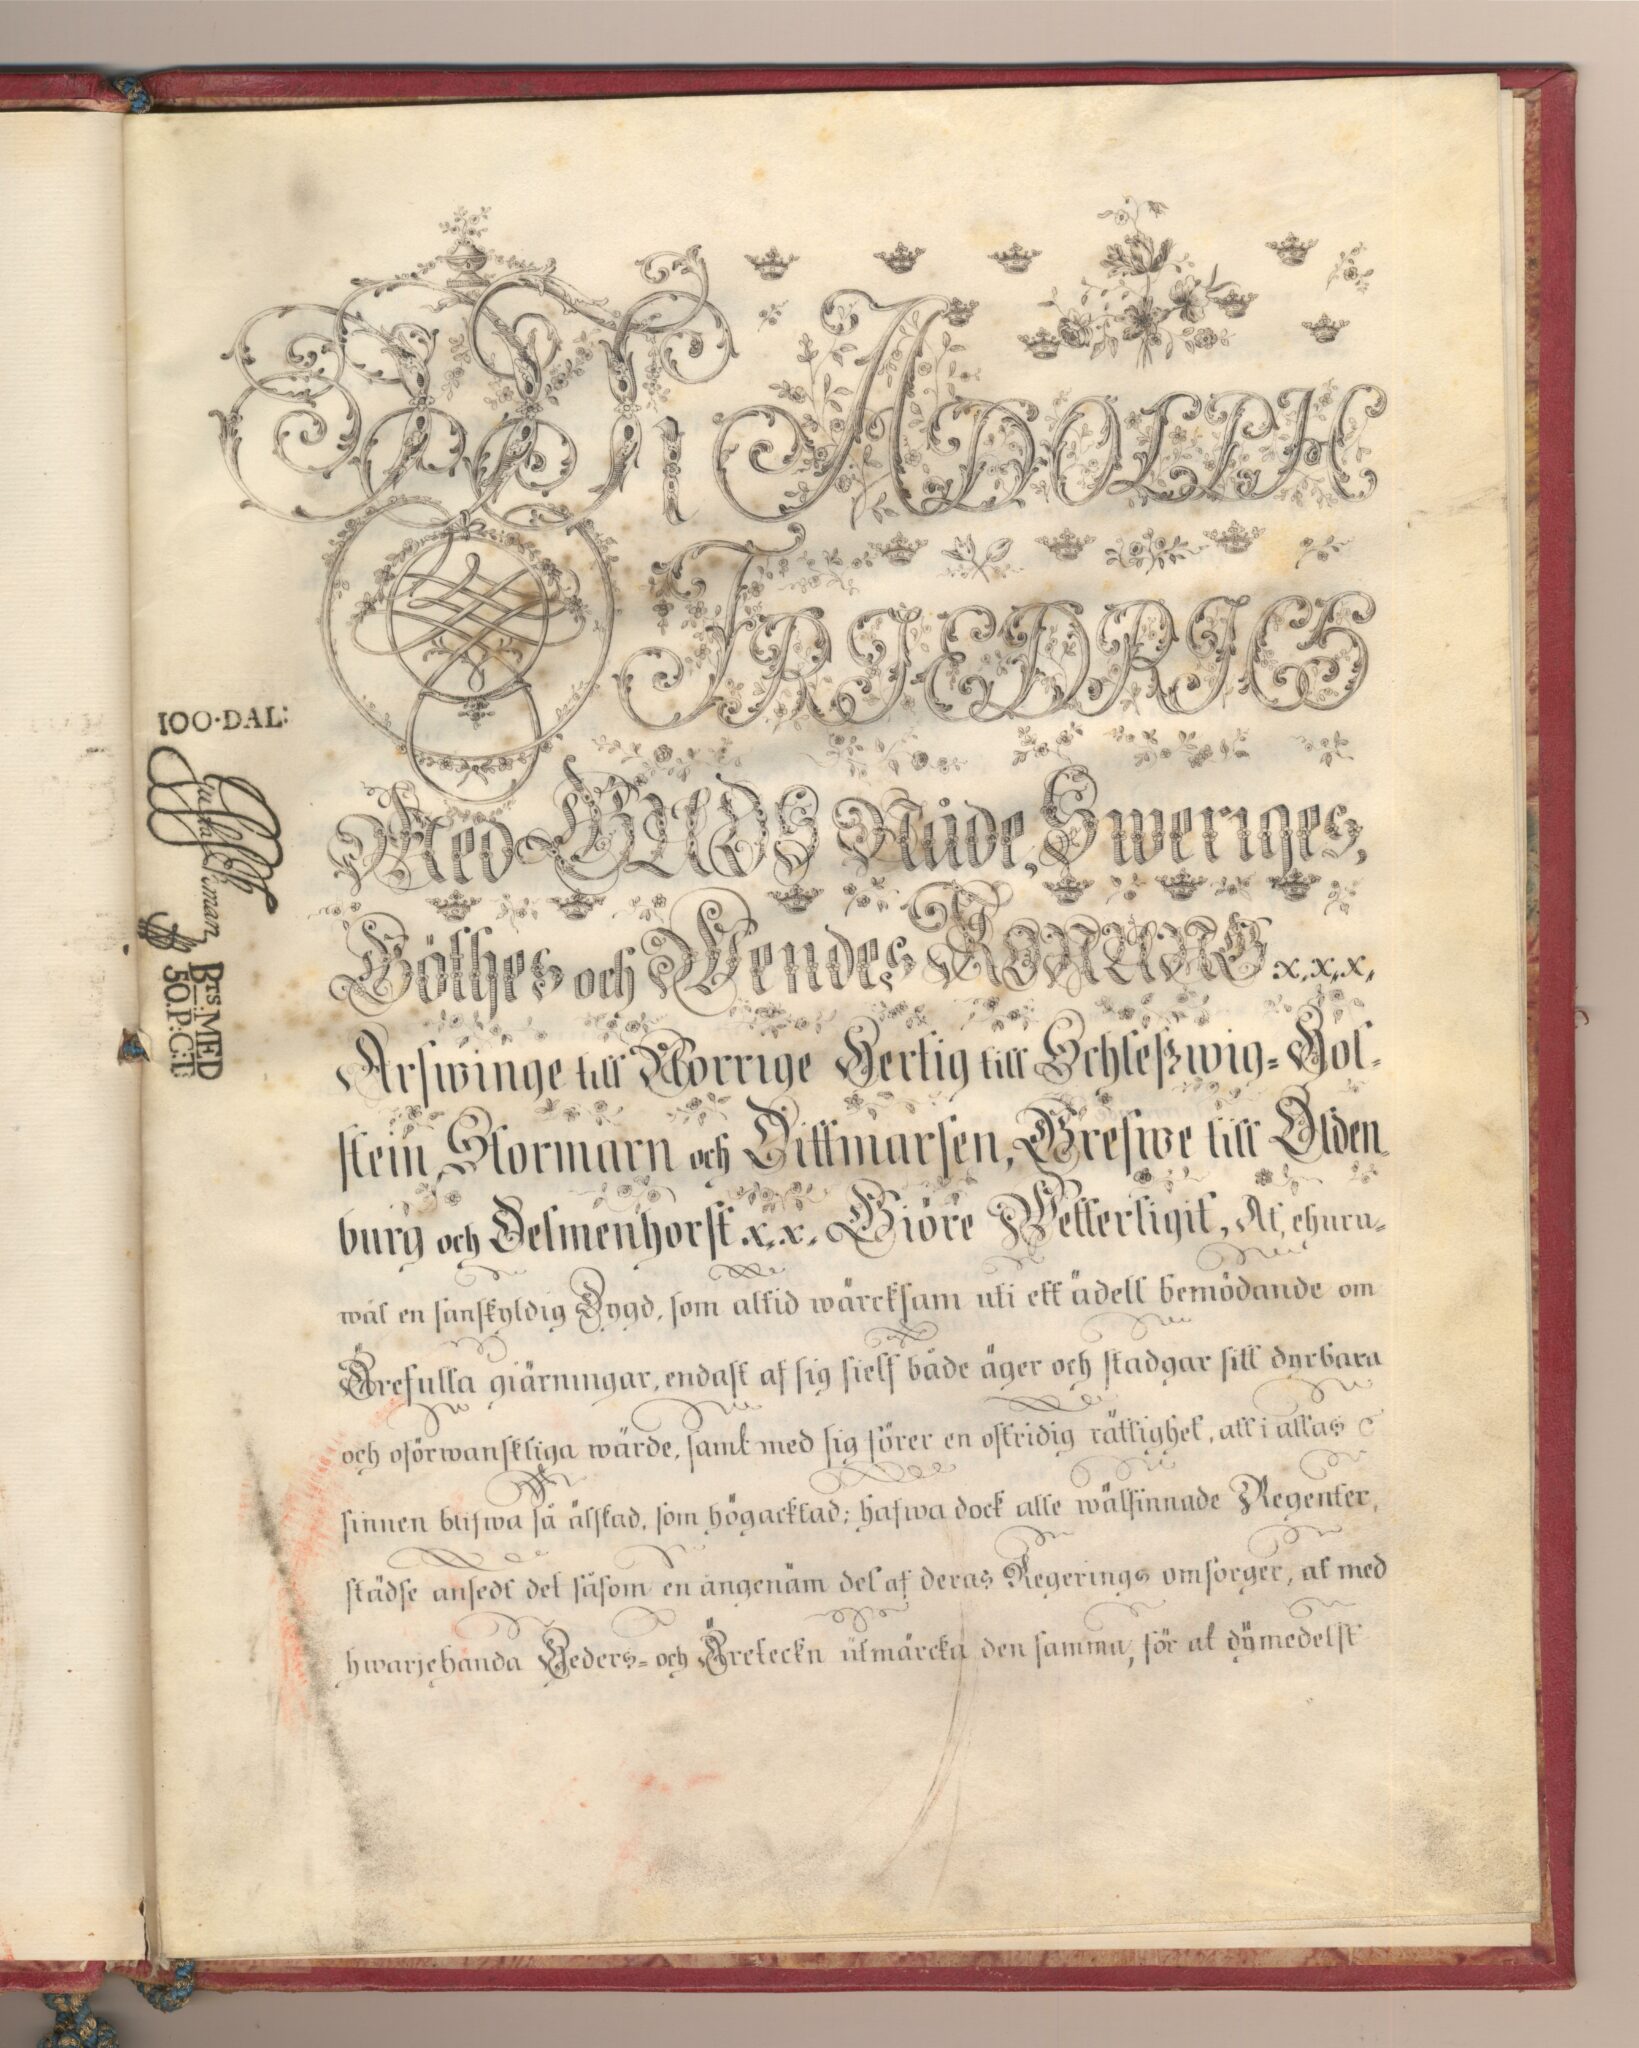 Wi ADOLPH
FRIEDRICH
Med GUDS Nåde, Sweriges,
Göthes och Wendes KONUNG x, x, x,
Arfwinge till Norrige Hertig till Schleßwig-Hol-
stein, Stormarn och Dittmarsen, Grefwe till Olden-
burg och Delmenhorst x, x, Giöre Wetterligit, At, ehuru-
wäl en sanskyldig Dygd, som altid wärcksam uti ett ädelt bemödande om
Ärefulla giärningar, endast af sig sielf både äger och stadgar sitt dyrbara
och oförwanskliga wärde, samt med sig förer en ostridig rättighet, att i allas
sinnen blifwa så älskad, som högacktad; hafwa dock alle wälsinnade Regenter,
städse ansedt det såsom en angenäm del af deras Regerings omsorger, at med
hwarjehanda Heders- och Äreteckn utmärcka den samma, för at dymedelst
100·DAL:
Brs: MED
50.P:C:T